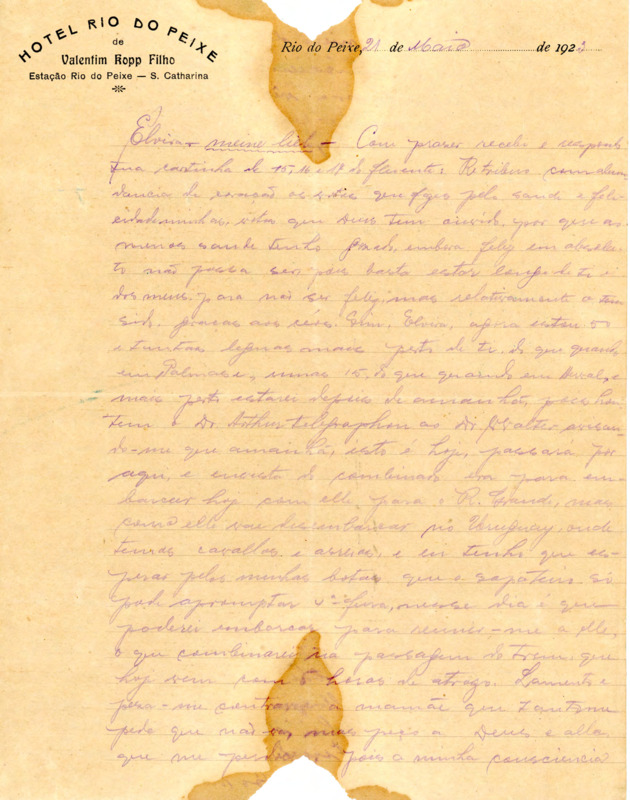 HOTEL RIO DO PEIXE
de
Valentim Kopp Filho
Estação Rio do Peixe — S. Catharina
Rio do Peixe, 21 de Maio de 1923
Elvira - meine - Com prazer recebo e
tua cartinha de 15, 16 e do Retribuo com
de coração os que pela saude e
minhas, que Deus tem por que ao
menos saude tenho embora feliz em
to não possa ser, pois basta estar longe de ti e
dos meus para não ser feliz, mas relativamente o tenho
sido, graças aos céos. Sim, Elvira, agora estou 50
e tantas leguas mais perto de ti do que quando
em Palmas e umas 15, do que quando em e
mais perto estarei depois de amanhã, pois
tem o Dr Arthur telephonou ao Dr Walter
do-me que amanhã, isto é hoje, passará por
aqui, e em do combinado era para em
barcar hoje com elle para o R. Grande, mas
como elle vae desembarcar no Uruguay, onde
temos cavallos e arreios, e eu tenho que es-
perar pelas minhas botas que o sapateiro só
pode apromptar 5ª feira, nesse dia é que
poderei embarcar para reunir-me a elle,
o que combinarei na passagem do trem, que
hoje vem com 5 horas de atrazo. Lamento e
peza-me contrariar a mamãe que tanto me
pede que não mas peço a Deus e a ella
que me pois a minha consciencia